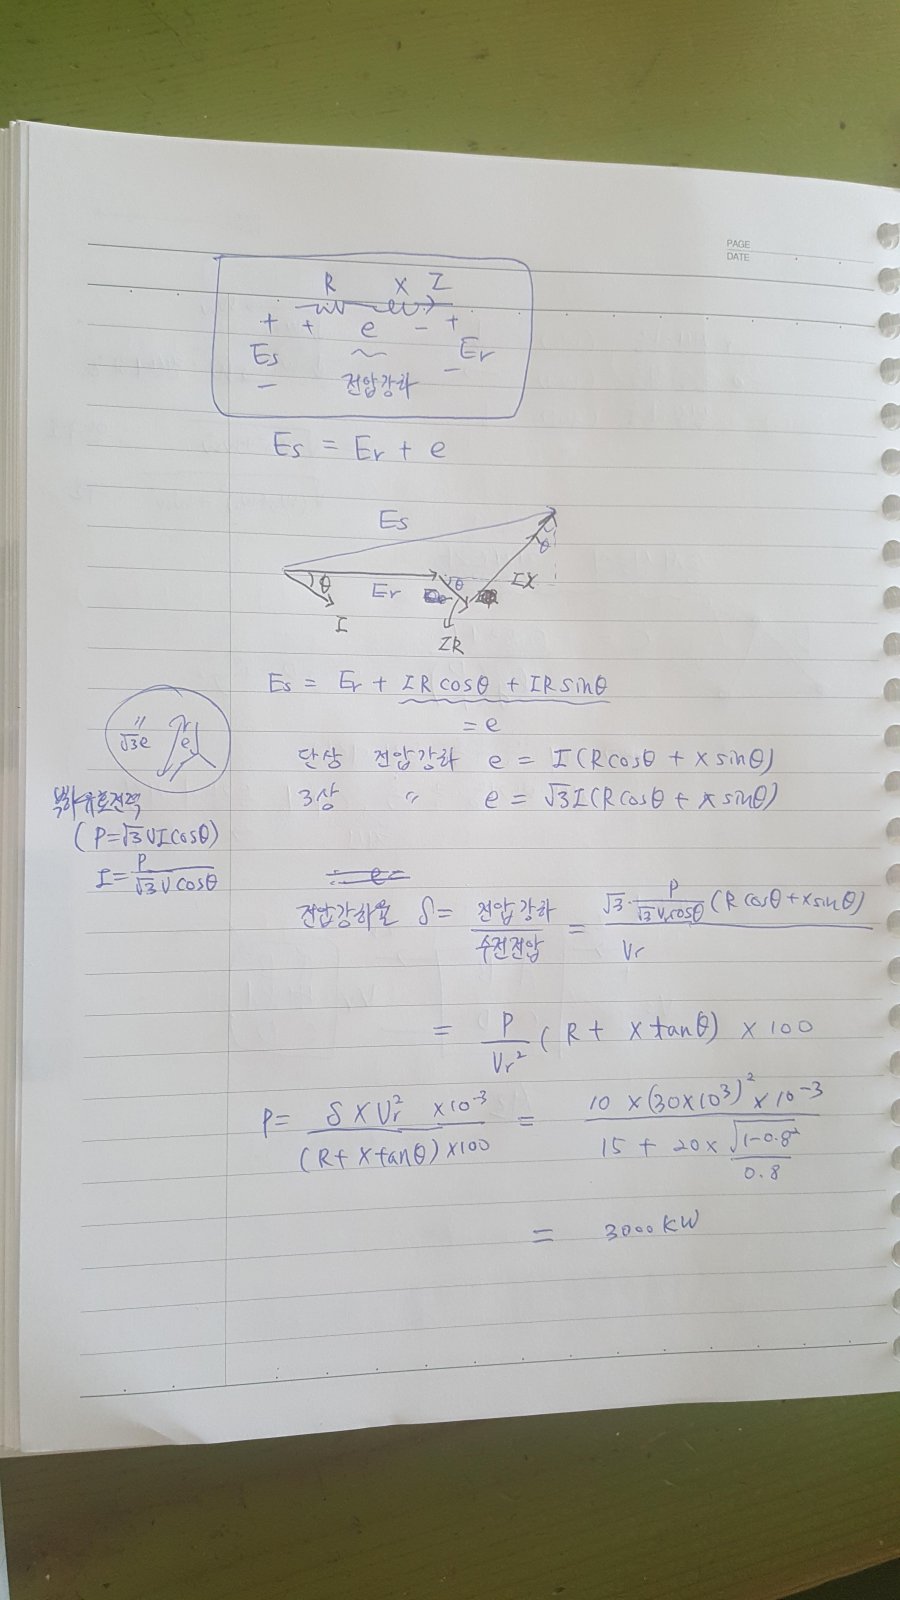 PAGE
DATE
R X I
+ + e - +
Es Er
- 전압강하 -
Es = Er + e
Es
θ
θ Er θ IX
I IR
Es = Er + IR cosθ + IR sinθ
= e
√3e e
단상 전압강하 e = I(R cosθ + X sinθ)
3상 〃 e = √3I(R cosθ + X sinθ)
부하유효전력
(P=√3VIcosθ)
I = P/√3Vcosθ
전압강하율 δ = 전압강하/수전전압 = √3·P/√3Vrcosθ (R cosθ + X sinθ)/Vr
= P/Vr² (R + X tanθ) × 100
P = δ × Vr² × 10⁻³/(R + X tanθ) × 100 = 10 × (30×10³)² × 10⁻³/15 + 20 × √1-0.8²/0.8
= 3000 KW